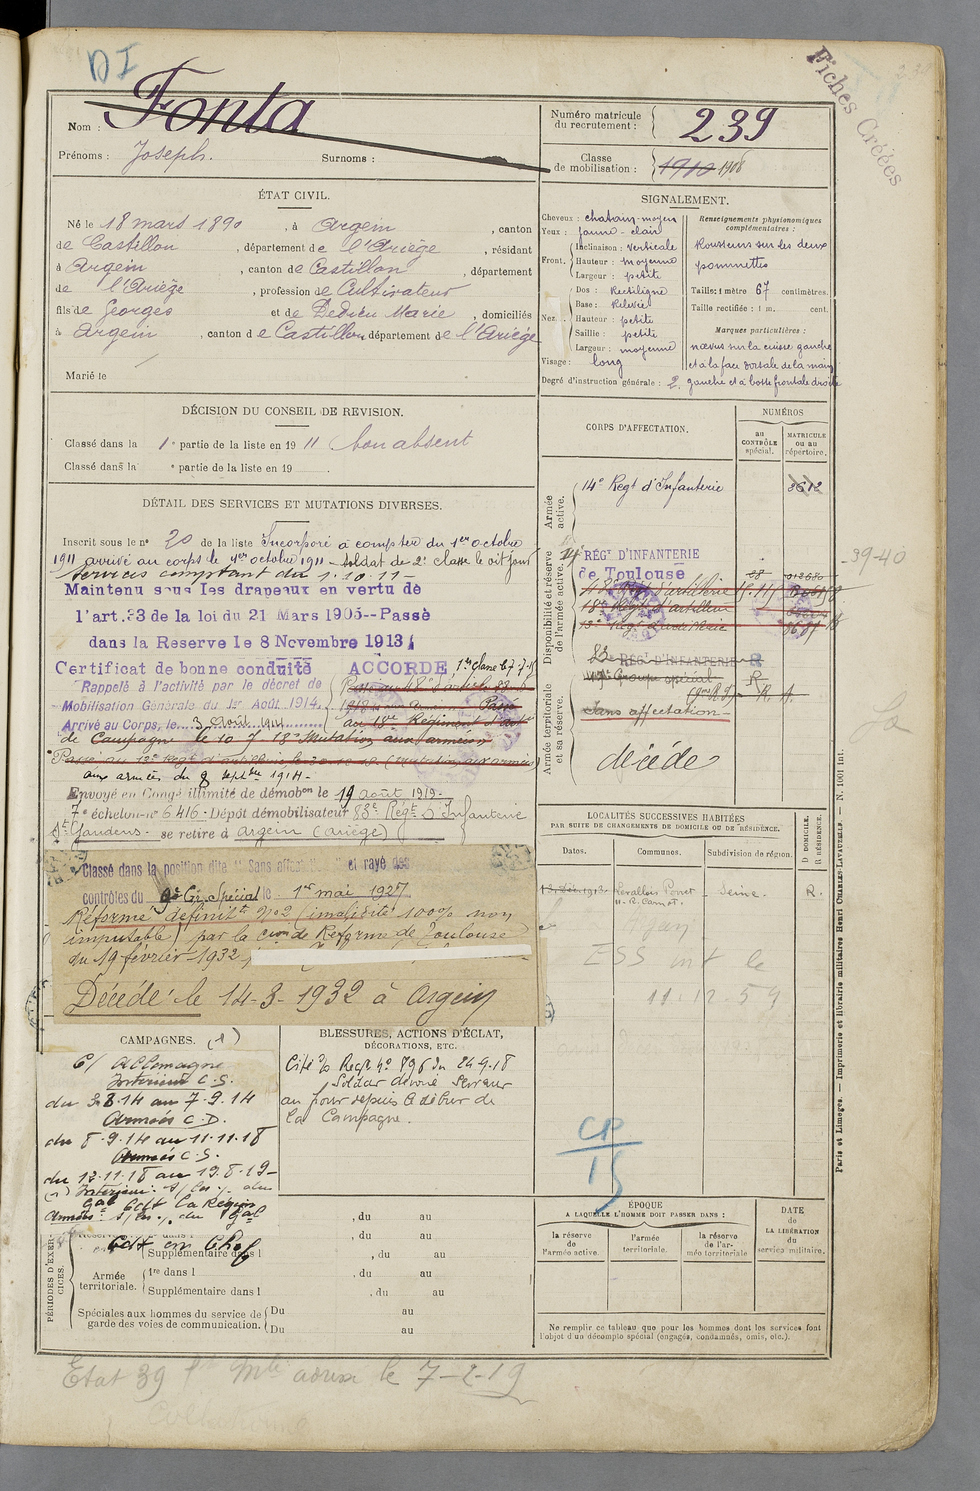 DI
Fiches Créées
Nom : Fonta
Prénoms : Joseph. Surnoms :
Numéro matricule du recrutement : 239
Classe de mobilisation : 1910 1908
ÉTAT CIVIL.
Né le 18 mars 1890, à Argein, canton
de Castillon, département de l'Ariège, résidant
à Argein, canton de Castillon, département
de l'Ariège, profession de Cultivateur
fils de Georges et de Dedieu Marie, domiciliés
à Argein, canton de Castillon, département de l'Ariège
Marié le
SIGNALEMENT.
Cheveux : chatain-moyen
Yeux : jaune-clair
Front. Inclinaison : verticale
Hauteur : moyenne
Largeur : petite
Nez. Dos : Rectiligne
Base : Relevée
Hauteur : petite
Saillie : petite
Largeur : moyenne
Visage : long
Renseignements physionomiques complémentaires :
Rousseurs sur les deux
pommettes
Taille : 1 mètre 67 centimètres.
Taille rectifiée : 1 m. cent.
Marques particulières :
nœvus sur la cuisse gauche
et à la face dorsale de la main
gauche et à bosse frontale droite
Degré d'instruction générale : 2
DÉCISION DU CONSEIL DE REVISION.
Classé dans la 1e partie de la liste en 1911 bon absent
Classé dans la e partie de la liste en 19
DÉTAIL DES SERVICES ET MUTATIONS DIVERSES.
Inscrit sous le n° 20 de la liste Incorporé à compter du 1er octobre
1911 arrivé au corps le 1er octobre 1911 - soldat de 2e classe le dit jour
services comptant du 1.10.11 -
Maintenu sous les drapeaux en vertu de
l'art. 33 de la loi du 21 Mars 1905--Passé
dans la Reserve le 8 Novembre 1913
Certificat de bonne conduite ACCORDE
Rappelé à l'activité par le décret de
Mobilisation Générale du 1er Août 1914.
Arrivé au Corps, le 3 août 1914
de Campagne le 10
aux armées du 8 septbre 1914 -
Envoyé en Congé illimité de démobon le 19 août 1919.
7e échelon no 6416 - Dépôt démobilisateur 83e Regt d'Infanterie
St Gaudens - se retire à Argein (Ariège)
Classé dans la position dite "Sans affectation" et rayé des
contrôles du 9e Gr. Spécial le 1er mai 1927
Réformé définitt no 2 (invalidité 100% non
imputable) par la Cion de Réforme de Toulouse
du 19 février 1932
Décédé le 14-3-1932 à Argein
CORPS D'AFFECTATION.
NUMÉROS
au CONTRÔLE spécial.
MATRICULE ou au répertoire.
Armée active.
14e Regt d'Infanterie 3612
Disponibilité et réserve de l'armée active.
14 RÉGt D'INFANTERIE
de Toulouse
Armée territoriale et sa réserve.
83e RÉGt D'INFANTERIE
Sans affectation -
décédé
39-40
LOCALITÉS SUCCESSIVES HABITÉES
PAR SUITE DE CHANGEMENTS DE DOMICILE OU DE RÉSIDENCE.
Dates. Communes. Subdivision de région. D DOMICILE, R RÉSIDENCE.
Levallois Perret Seine. R.
ESS
11.12.59
CP
15
CAMPAGNES. (1)
C/ Allemagne
Intérieur C.S.
du 3.8.14 au 7.9.14
Armées C.D.
du 8.9.14 au 11.11.18
Armées C.S.
du 12.11.18 au 19.8.19 -
(1) Intérieur :
Gal Cdt la Région
Armées : du Gal
Cdt en Chef
BLESSURES, ACTIONS D'ÉCLAT,
DÉCORATIONS, ETC.
Cité Regt no 896 du 24.9.18
Soldat dévoué serveur
au jour depuis le début de
la Campagne.
PÉRIODES D'EXERCICES.
Supplémentaire dans l , du au
Armée territoriale. 1re dans l , du au
Supplémentaire dans l , du au
Spéciales aux hommes du service de garde des voies de communication. Du au
Du au
ÉPOQUE
A LAQUELLE L'HOMME DOIT PASSER DANS :
la réserve de l'armée active.
l'armée territoriale.
la réserve de l'armée territoriale
DATE de LA LIBÉRATION du service militaire.
Ne remplir ce tableau que pour les hommes dont les services font
l'objet d'un décompte spécial (engagés, condamnés, omis, etc.).
Paris et Limoges. — Imprimerie et librairie militaires Henri CHARLES-LAVAUZELLE. — N. 1001 int.
Etat 39 le 7-2-19